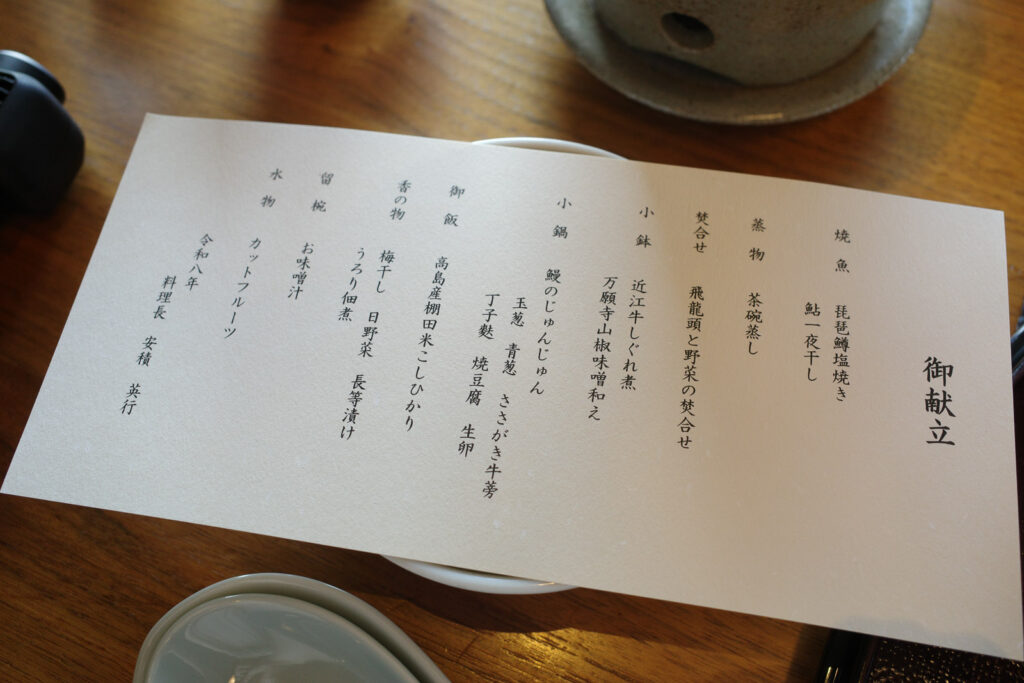 御献立
焼魚 琵琶鱒塩焼き
鮎一夜干し
蒸物 茶碗蒸し
焚合せ 飛龍頭と野菜の焚合せ
小鉢 近江牛しぐれ煮
万願寺山椒味噌和え
小鍋 鰻のじゅんじゅん
玉葱 青葱 ささがき牛蒡
丁子麩 焼豆腐 生卵
御飯 高島産棚田米こしひかり
香の物 梅干し 日野菜 長等漬け
うろり佃煮
留椀 お味噌汁
水物 カットフルーツ
令和八年
料理長 安積 英行